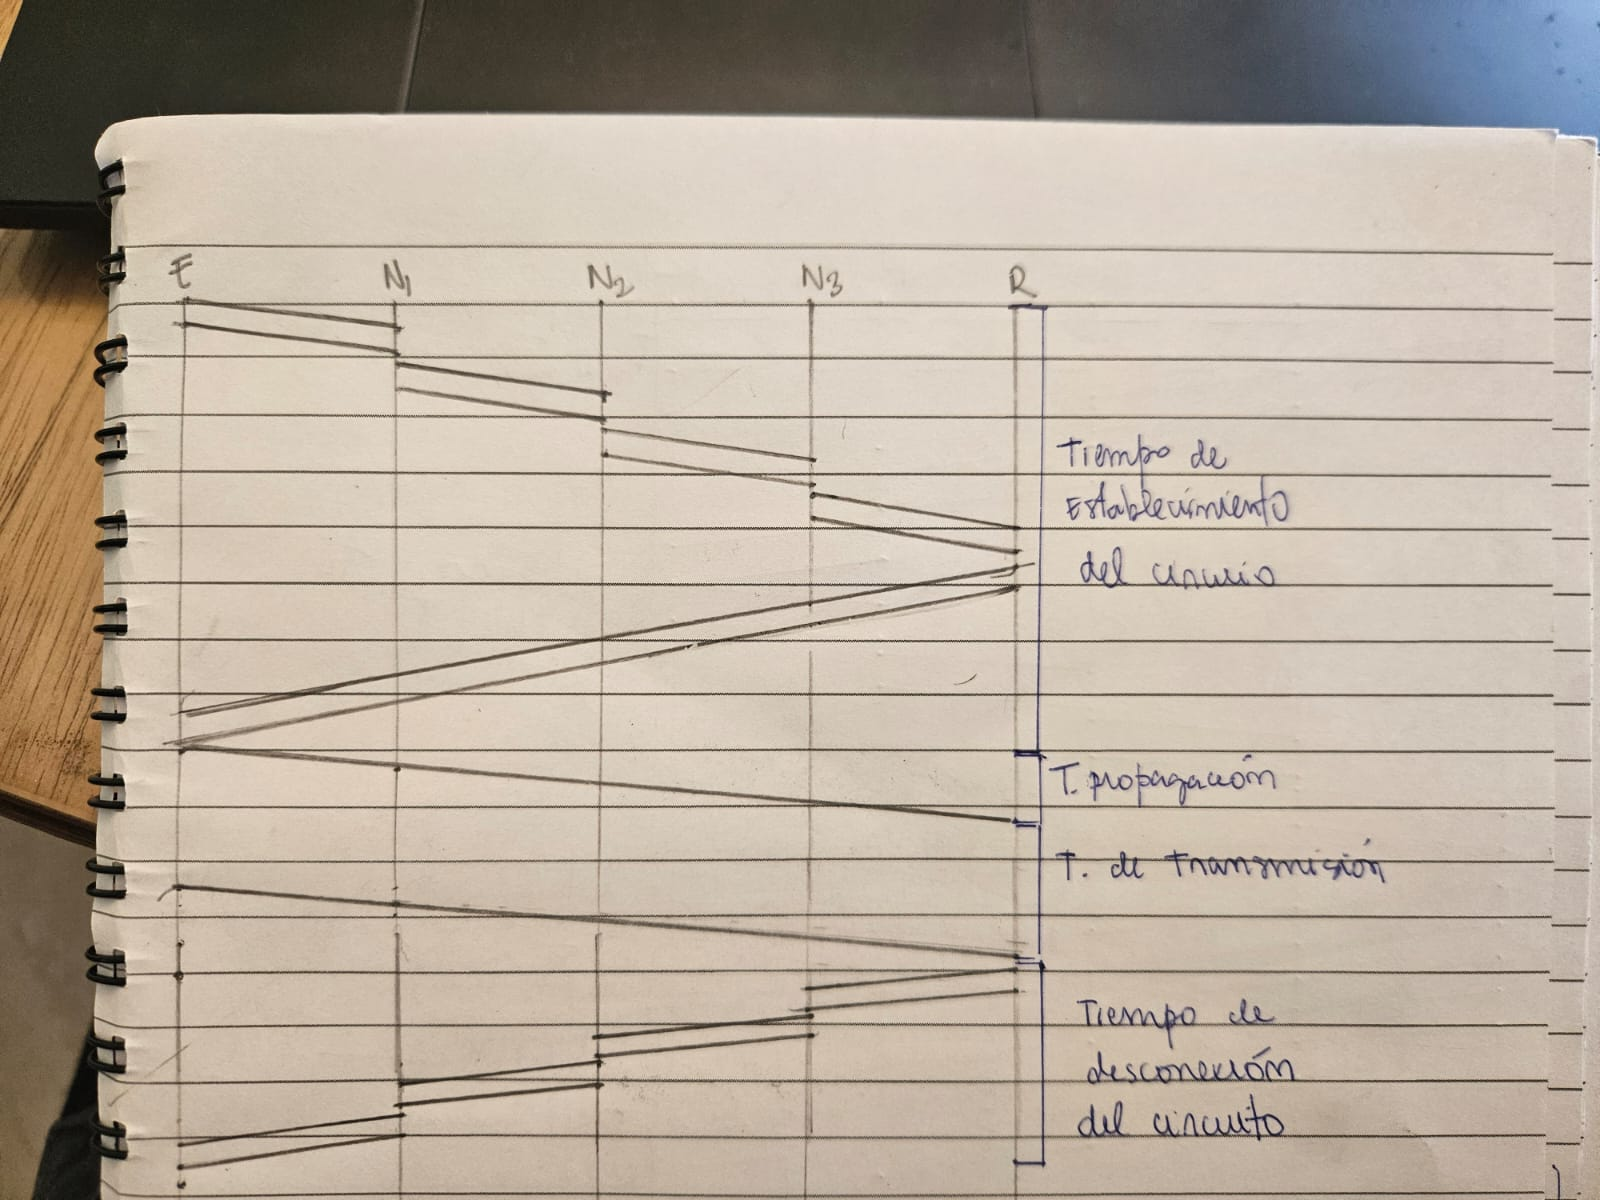 E N1 N2 N3 R
Tiempo de
Establecimiento
del
T. propagación
T. de transmisión
Tiempo de
desconexión
del circuito